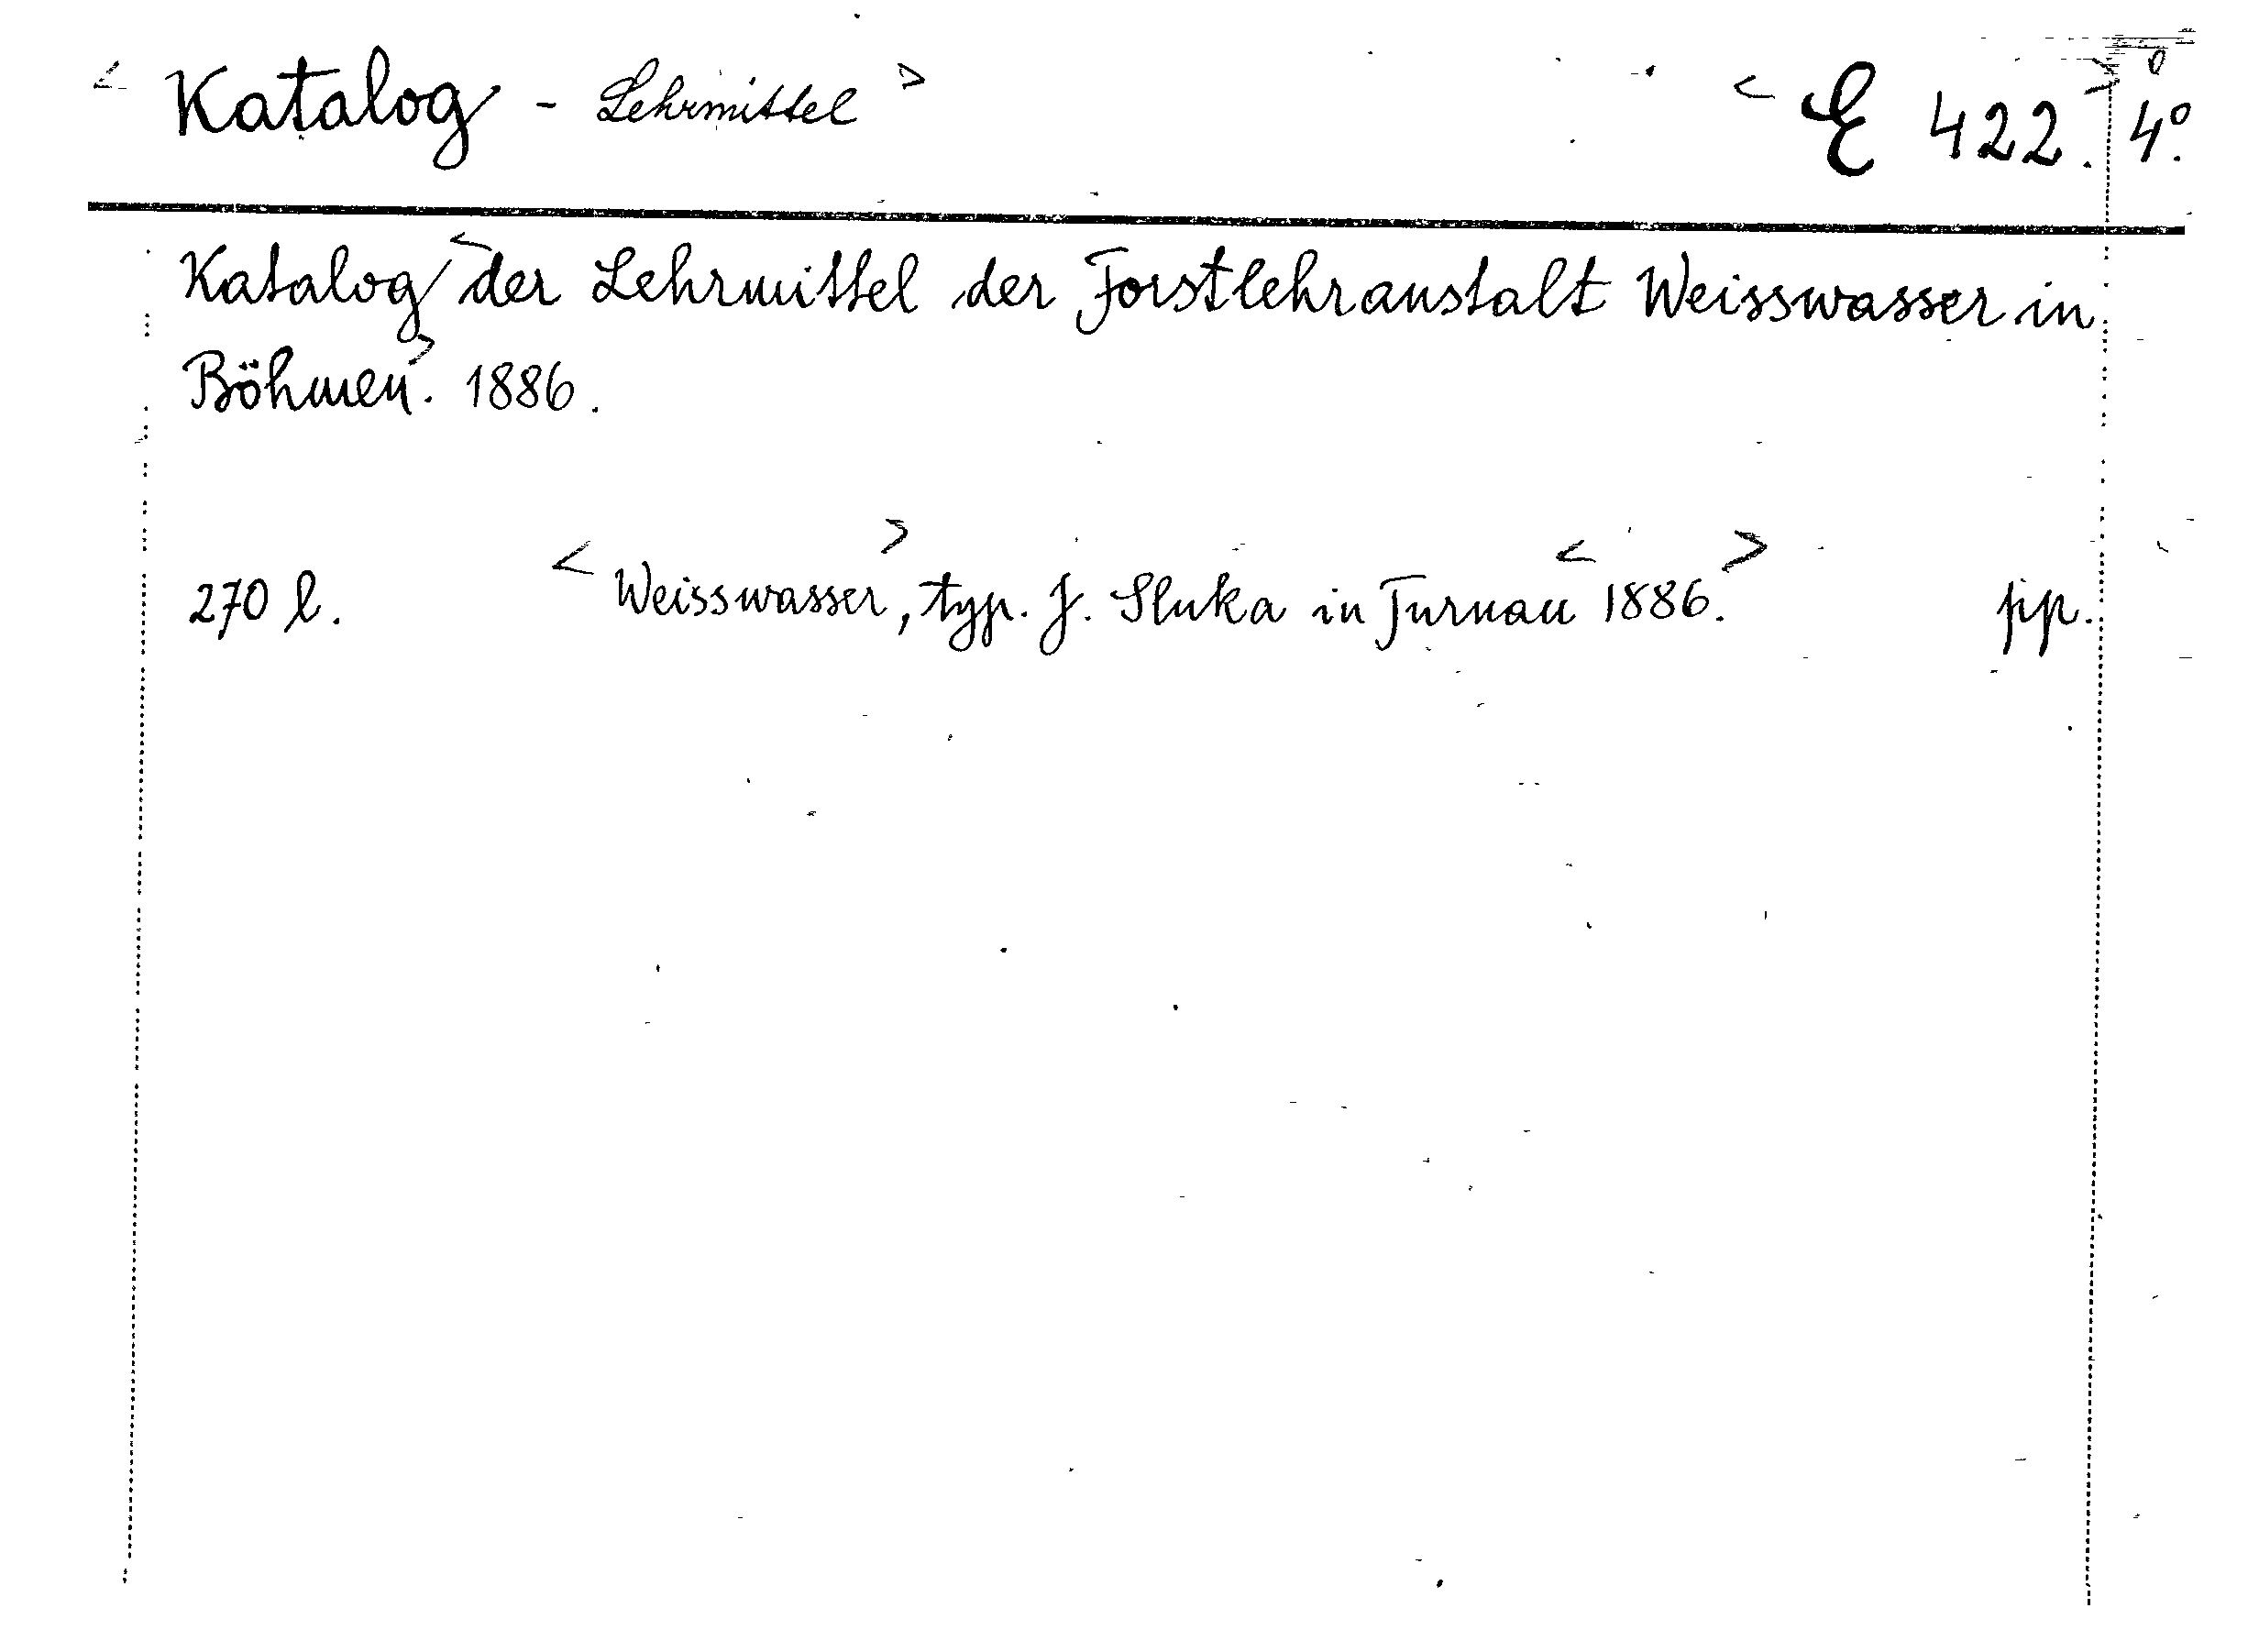 < Katalog - Lehrmittel > < E 422. > 4°.
Katalog < der Lehrmittel der Forstlehranstalt Weisswasser in
Böhmen >. 1886.
270 l. < Weisswasser >, typ. J. Sluka in Turnau < 1886. > pp.